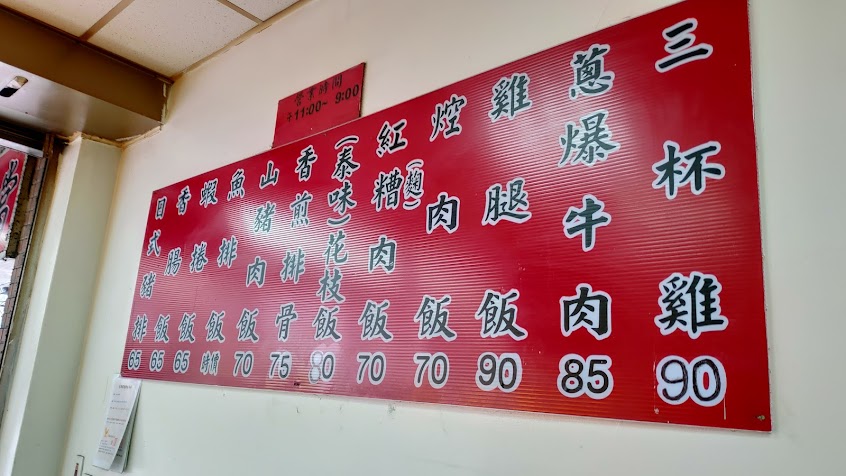 營業時間
午11:00~ 9:00
三杯雞 90
蔥爆牛肉 85
雞腿飯 90
焢肉飯 70
紅糟(麴)肉飯 70
(泰味)花枝飯 80
香煎排骨 75
山豬肉飯 70
魚排飯 時價
蝦捲飯 65
香腸飯 65
日式豬排 65